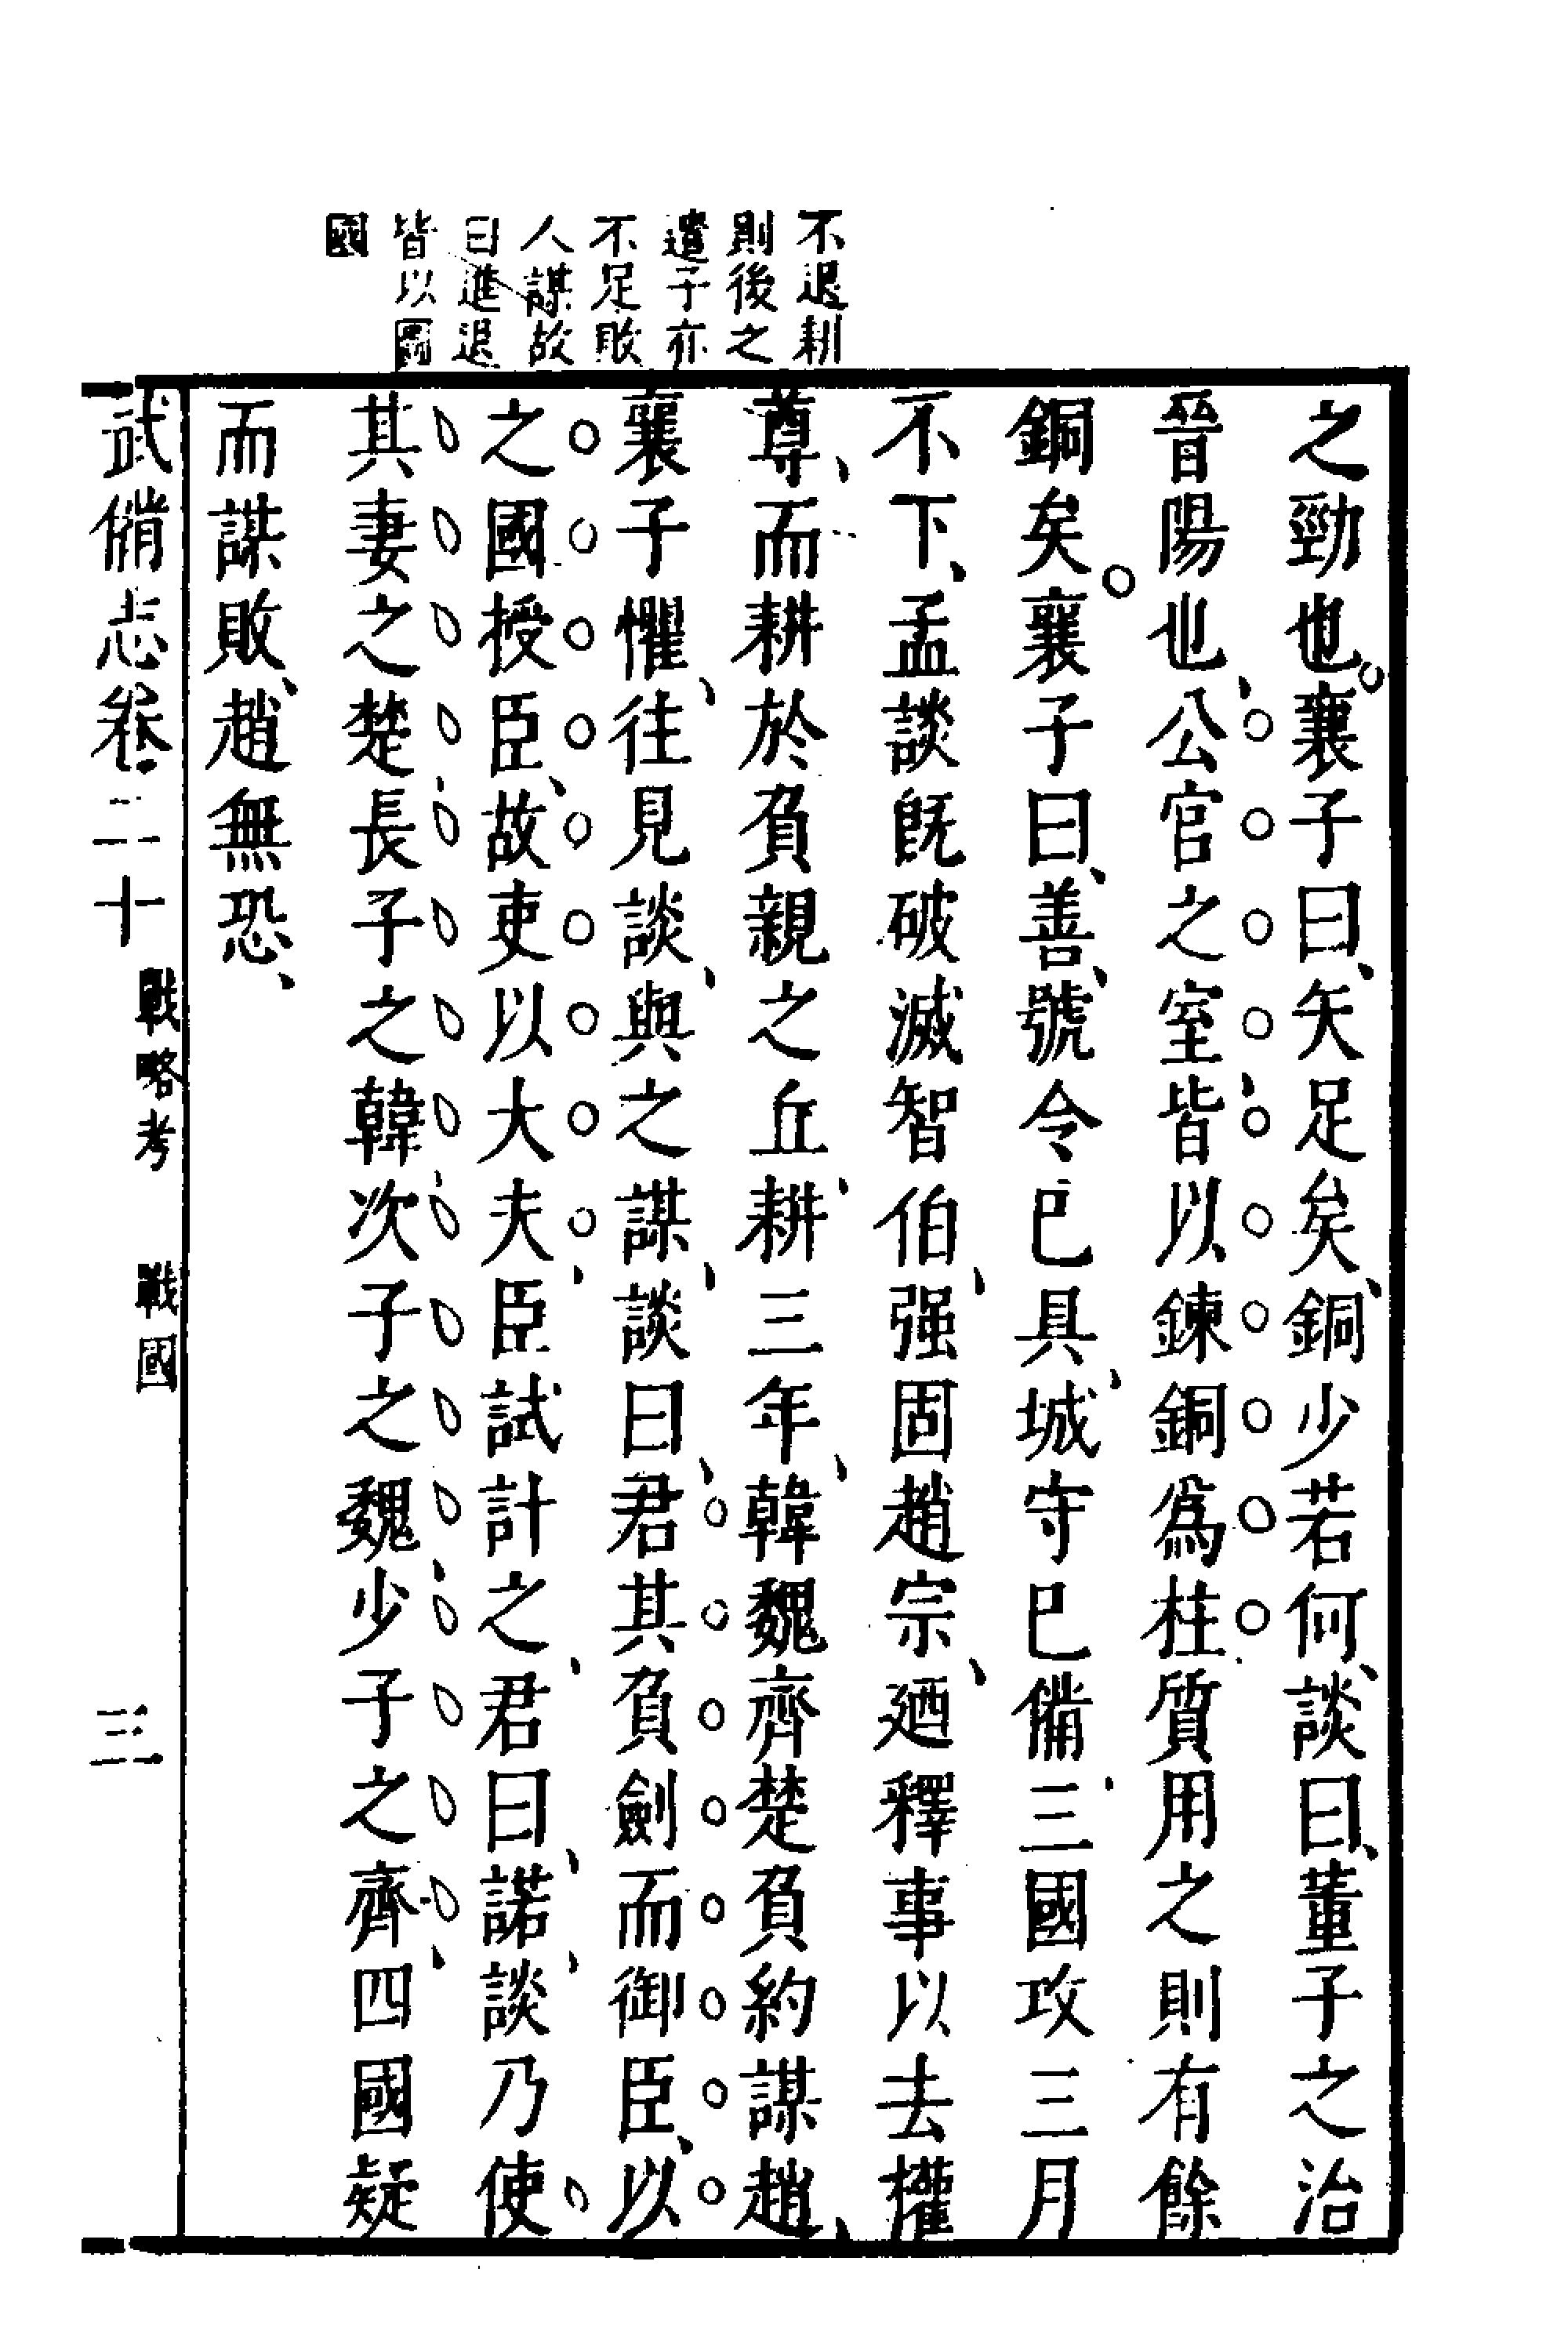 不退耕
則後之
遣子亦
不足敗
人謀故
曰進退
皆以圖
國
之勁也襄子曰矢足矣銅少若何談曰董子之治
晉陽也公宮之室皆以鍊銅爲柱質用之則有餘
銅矣襄子曰善號令已具城守已備三國攻三月
不下孟談旣破滅智伯强固趙宗廼釋事以去權
尊而耕於負親之丘耕三年韓魏齊楚負約謀趙
襄子懼往見談與之謀談曰君其負劍而御臣以
之國授臣故吏以大夫臣試計之君曰諾談乃使
其妻之楚長子之韓次子之魏少子之齊四國疑
而謀敗趙無恐
武備志卷二十 戰略考 戰國 三